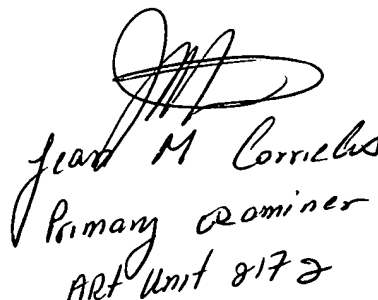 Jean M Corrielus
Primary Examiner
ART Unit 2172